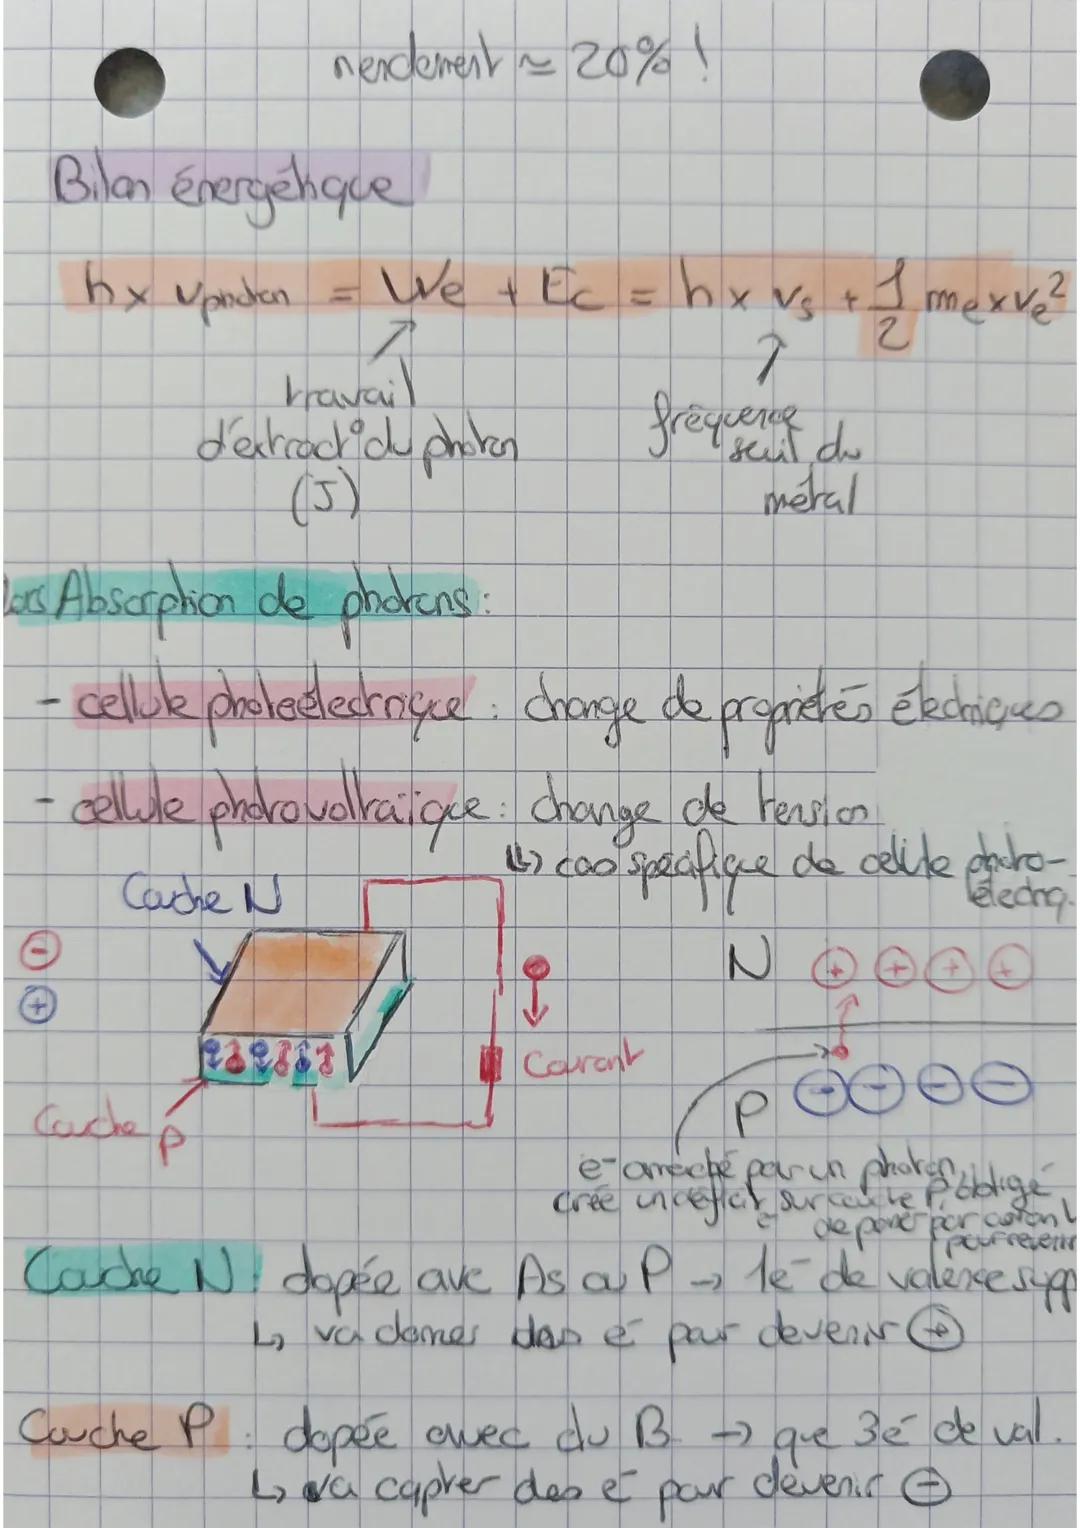 rendement ≈ 20% !
Bilan énergétique
h x νphoton = We + Ec = h x νs + 1/2 me x ve²
travail
d'extract° du photon
(J)
fréquence
seuil du
métal
lors Absorption de photons :
- cellule photoélectrique : change de propriétés électriques
- cellule photovoltaïque : change de tension
↳ cas spécifique de cellule photo-
électriq.
Couche N
⊖
⊕
Courant
Couche P
N ⊕ ⊕ ⊕ ⊕
P ⊖ ⊖ ⊖ ⊖
e⁻ arraché par un photon,
crée un déficit sur couche P, obligé
de passer par courant
pour revenir
Couche N : dopée avec As ou P → 1e⁻ de valence supp
↳ va donner des e⁻ pour devenir ⊕
Couche P : dopée avec du B → que 3e⁻ de val.
↳ va capter des e⁻ pour devenir ⊖